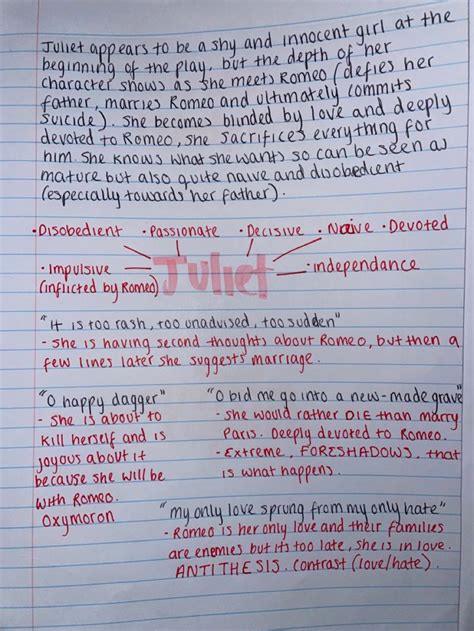 Juliet appears to be a shy and innocent girl at the
beginning of the play, but the depth of her
character shows as she meets Romeo (defies her
father, marries Romeo and ultimately commits
suicide). She becomes blinded by love and deeply
devoted to Romeo, she sacrifices everything for
him. She knows what she wants so can be seen as
mature but also quite naive and disobedient
(especially towards her father).
• Disobedient • Passionate • Decisive • Naive • Devoted
• Impulsive
(inflicted by Romeo)
Juliet
• independance
"it is too rash, too unadvised, too sudden"
- She is having second thoughts about Romeo, but then a
few lines later she suggests marriage.
"O happy dagger"
- She is about to
kill herself and is
joyous about it
because she will be
with Romeo.
Oxymoron
"O bid me go into a new-made grave"
- She would rather DIE than marry
Paris. Deeply devoted to Romeo.
- Extreme, FORESHADOWS that
is what happens.
"my only love sprung from my only hate"
- Romeo is her only love and their families
are enemies but its too late, she is in love.
ANTITHESIS. contrast (love/hate).